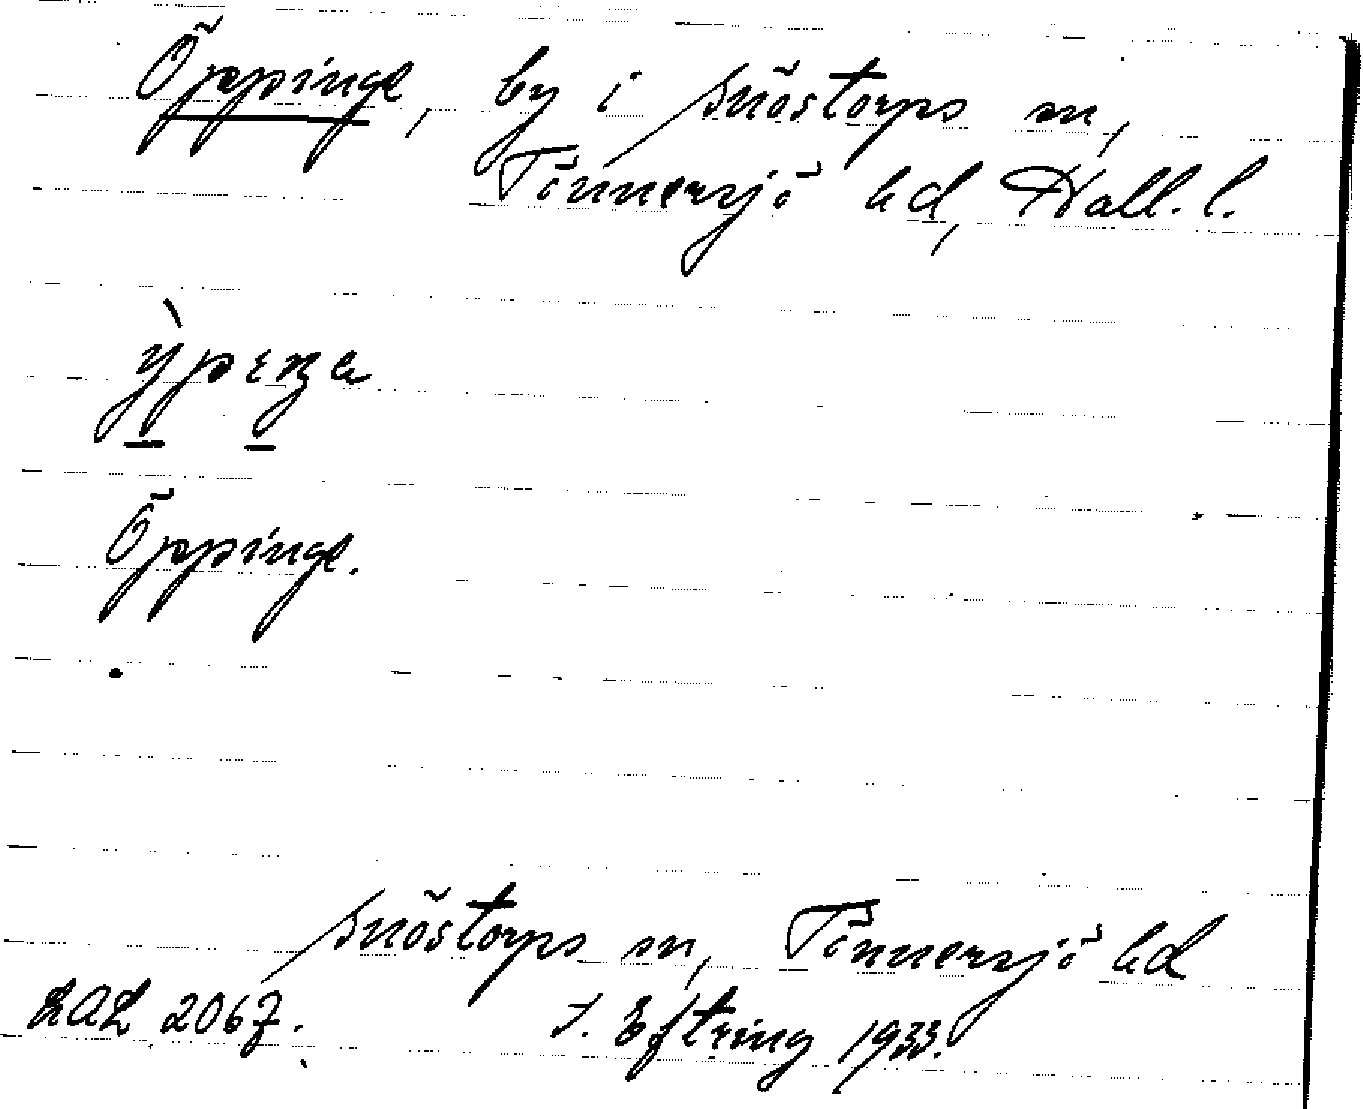 Öppinge, by i Snöstorps sn,
Tönnersjö hd, Hall. l.
Öppinge.
Snöstorps sn, Tönnersjö hd
LAL 2067. S. Eftring 1933.